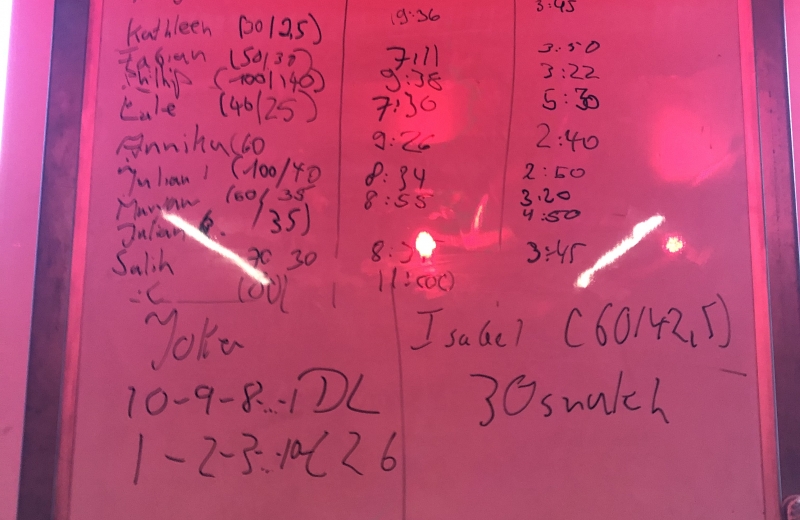 3:45
Kathleen (30/25) 19:36
Fabian (50/30) 7:11 3:50
Philip (100/40) 9:38 3:22
Eule (40/25) 7:30 5:30
Annika (60 9:26 2:40
Julian 1 (100/40 8:34 2:50
(60/35 8:55 3:20
Julian 6. /35) 4:50
Salih 70 30 8: 3:45
Joker
10-9-8...1 DL
1-2-3...10 C2B
Isabel (60/42,5)
30 snatch